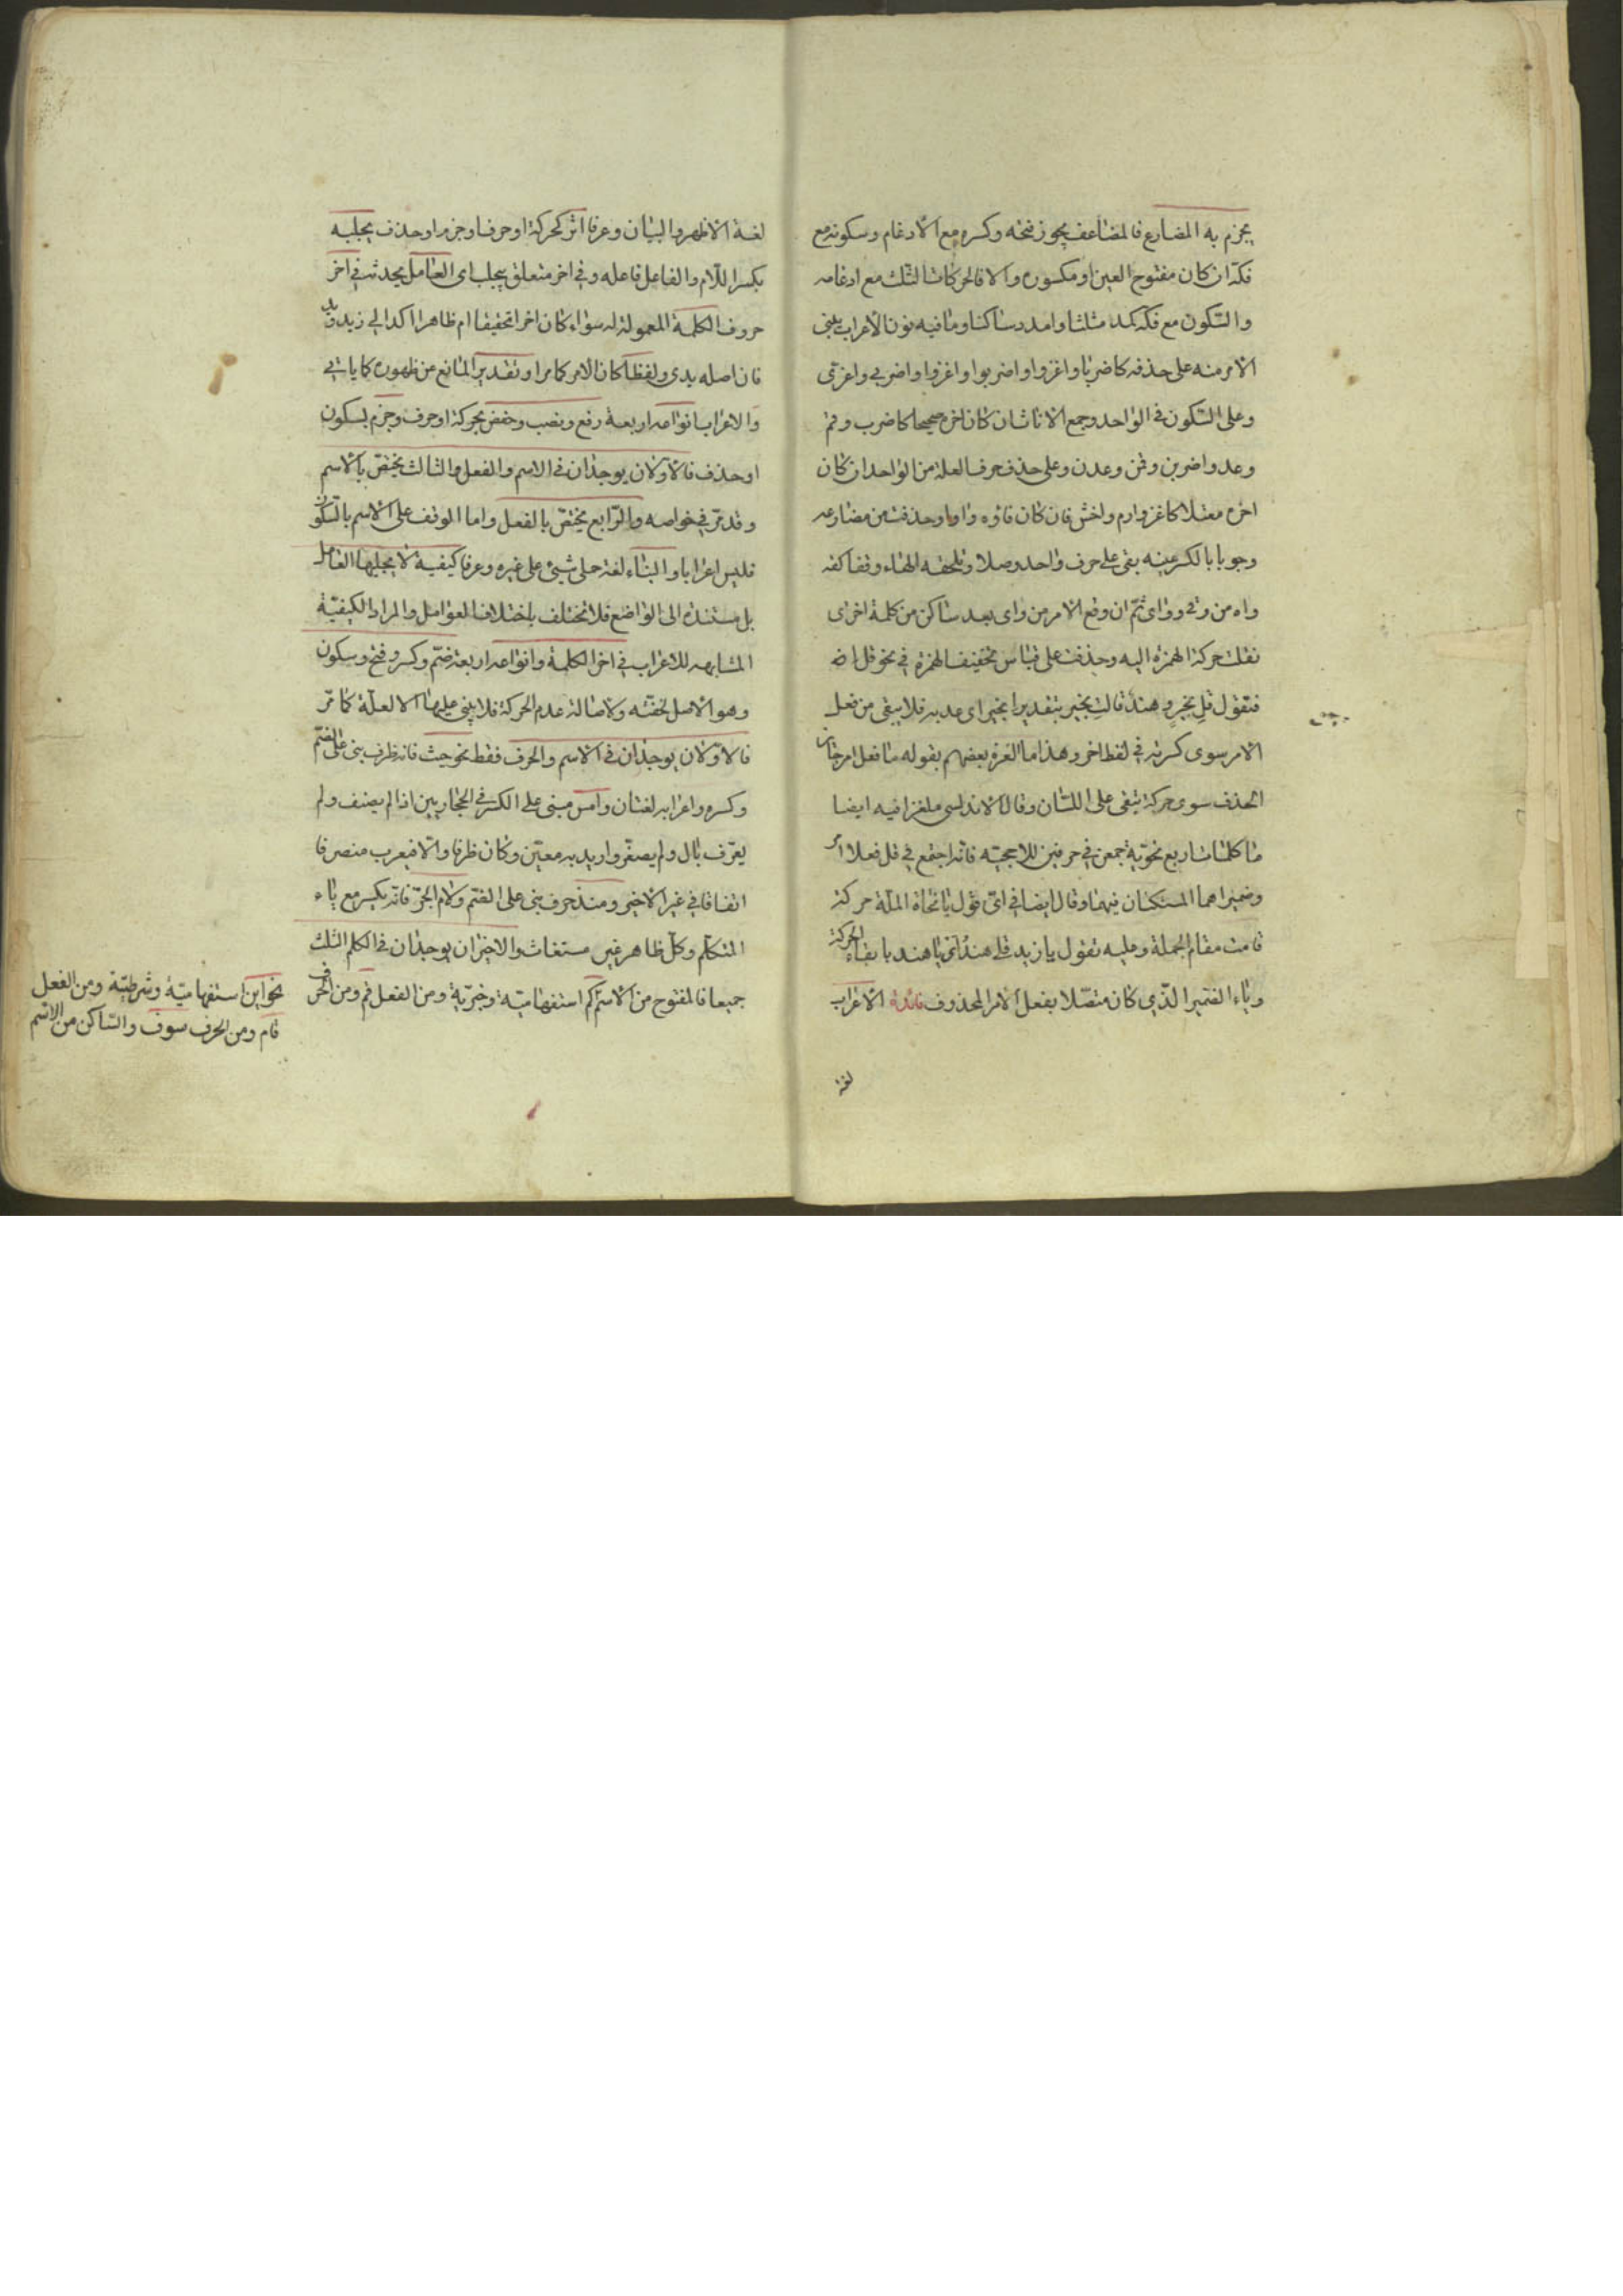 يجزم به المضارع فالمضاعف يجوز فتحه وكسره مع الادغام وسكونه مع
فكه ان كان مفتوح العين او مكسوره والا فالحركات الثلث مع ادغامه
والسكون مع فكه كمد مثلثا وامدد ساكنا وما فيه نون الاعراب يبنى
الامر منه على حذفه كاضربا واغزوا واضربوا واغزوا واضربي واغزي
وعلى السكون في الواحد وجمع الاناث ان كان اخره صحيحا كاضرب وقم
وعد واضربن وقمن وعدن وعلى حذف حرف العلة من الواحد ان كان
اخره معتلا كاغز وارم واخش فان كان فاؤه واوا وحذفت من مضارعه
وجوبا بالكسر عينه بقي على حرف واحد وصلا وتلحقه الهاء وقفا كقه
واه من وقى ووأى ثم ان وقع الامر من وأى بعد ساكن من كلمة اخرى
نقلت حركة الهمزة اليه وحذفت على قياس تخفيف الهمزة في نحو قل
فتقول قل بخير وهند قالت بخير بتقدير ا بخير اي عد به فلا يبقى من فعل
الامر سوى كسرته في لفظ اخر وهذا ما الغزه بعضهم بقوله ما فعل امر جائز
الحذف سوى حركة تبقى على اللسان وقال الاندلسي ملغزا فيه ايضا
ما كلمات اربع نحوية جمعن في حرفين للاحجية فانه اجتمع في قل فعلا امر
وضميراهما المستكنان فيهما وقال ايضا في اي قول يا نحاة الملة حركة
قامت مقام الجملة وعليه تقول يا زيد قل هند يا هند بابقاء الحركة
وياء الضمير الذي كان متصلا بفعل الامر المحذوف فائدة الاعراب
لغة
لغة الاظهار والبيان وعرفا اثر كحركة او حرف او جزم او حذف يجلبه
بكسر اللام والفاعل فاعله وفي اخر متعلق بيجلب اي العامل يحدث في اخر
حروف الكلمة المعمولة له سواء كان اخرا تحقيقا ام ظاهرا كدال زيد ويد
فان اصله يدي ولفظا كان الامر كما مر او تقدير المانع من ظهوره كما ياتي
والاعراب انواعه اربعة رفع ونصب وخفض بحركة او حرف وجزم بسكون
او حذف فالاولان يوجدان في الاسم والفعل والثالث يختص بالاسم
وقد مر في خواصه والرابع يختص بالفعل واما الوقف على الاسم بالسكون
فليس اعرابا والبناء لغة حلى شيئ على غيره وعرفا كيفية لا يجلبها العامل
بل مستندة الى الواضع فلا تختلف باختلاف العوامل والمراد الكيفية
المشابهه للاعراب في اخر الكلمة وانواعه اربعة ضم وكسر وفتح وسكون
وهو الاصل لخفته ولاصالة عدم الحركة فلا يبنى عليها الا لعلة كما مر
فالاولان يوجدان في الاسم والحرف فقط نحو حيث فانه ظرف بنى على الضم
وكسره واعرابه لغتان وامس مبنى على الكسر في الحجازيين اذا لم يضف ولم
يعرف بال ولم يصغر واريد به معين وكان ظرفا والا فيعرب منصرفا
اتفاقا في غير الاخير ومنذ حرف بنى على الضم ولام الجر فانه بكسر مع ياء
المتكلم وكل ظاهر غير مستغاث والاخيران يوجدان في الكلم الثلث
جميعا فالمفتوح من الاسم كم استفهامية وخبرية ومن الفعل قم ومن الحرف
نحو اين استفهامية وشرطية ومن الفعل
قام ومن الحرف سوف والساكن من الاسم